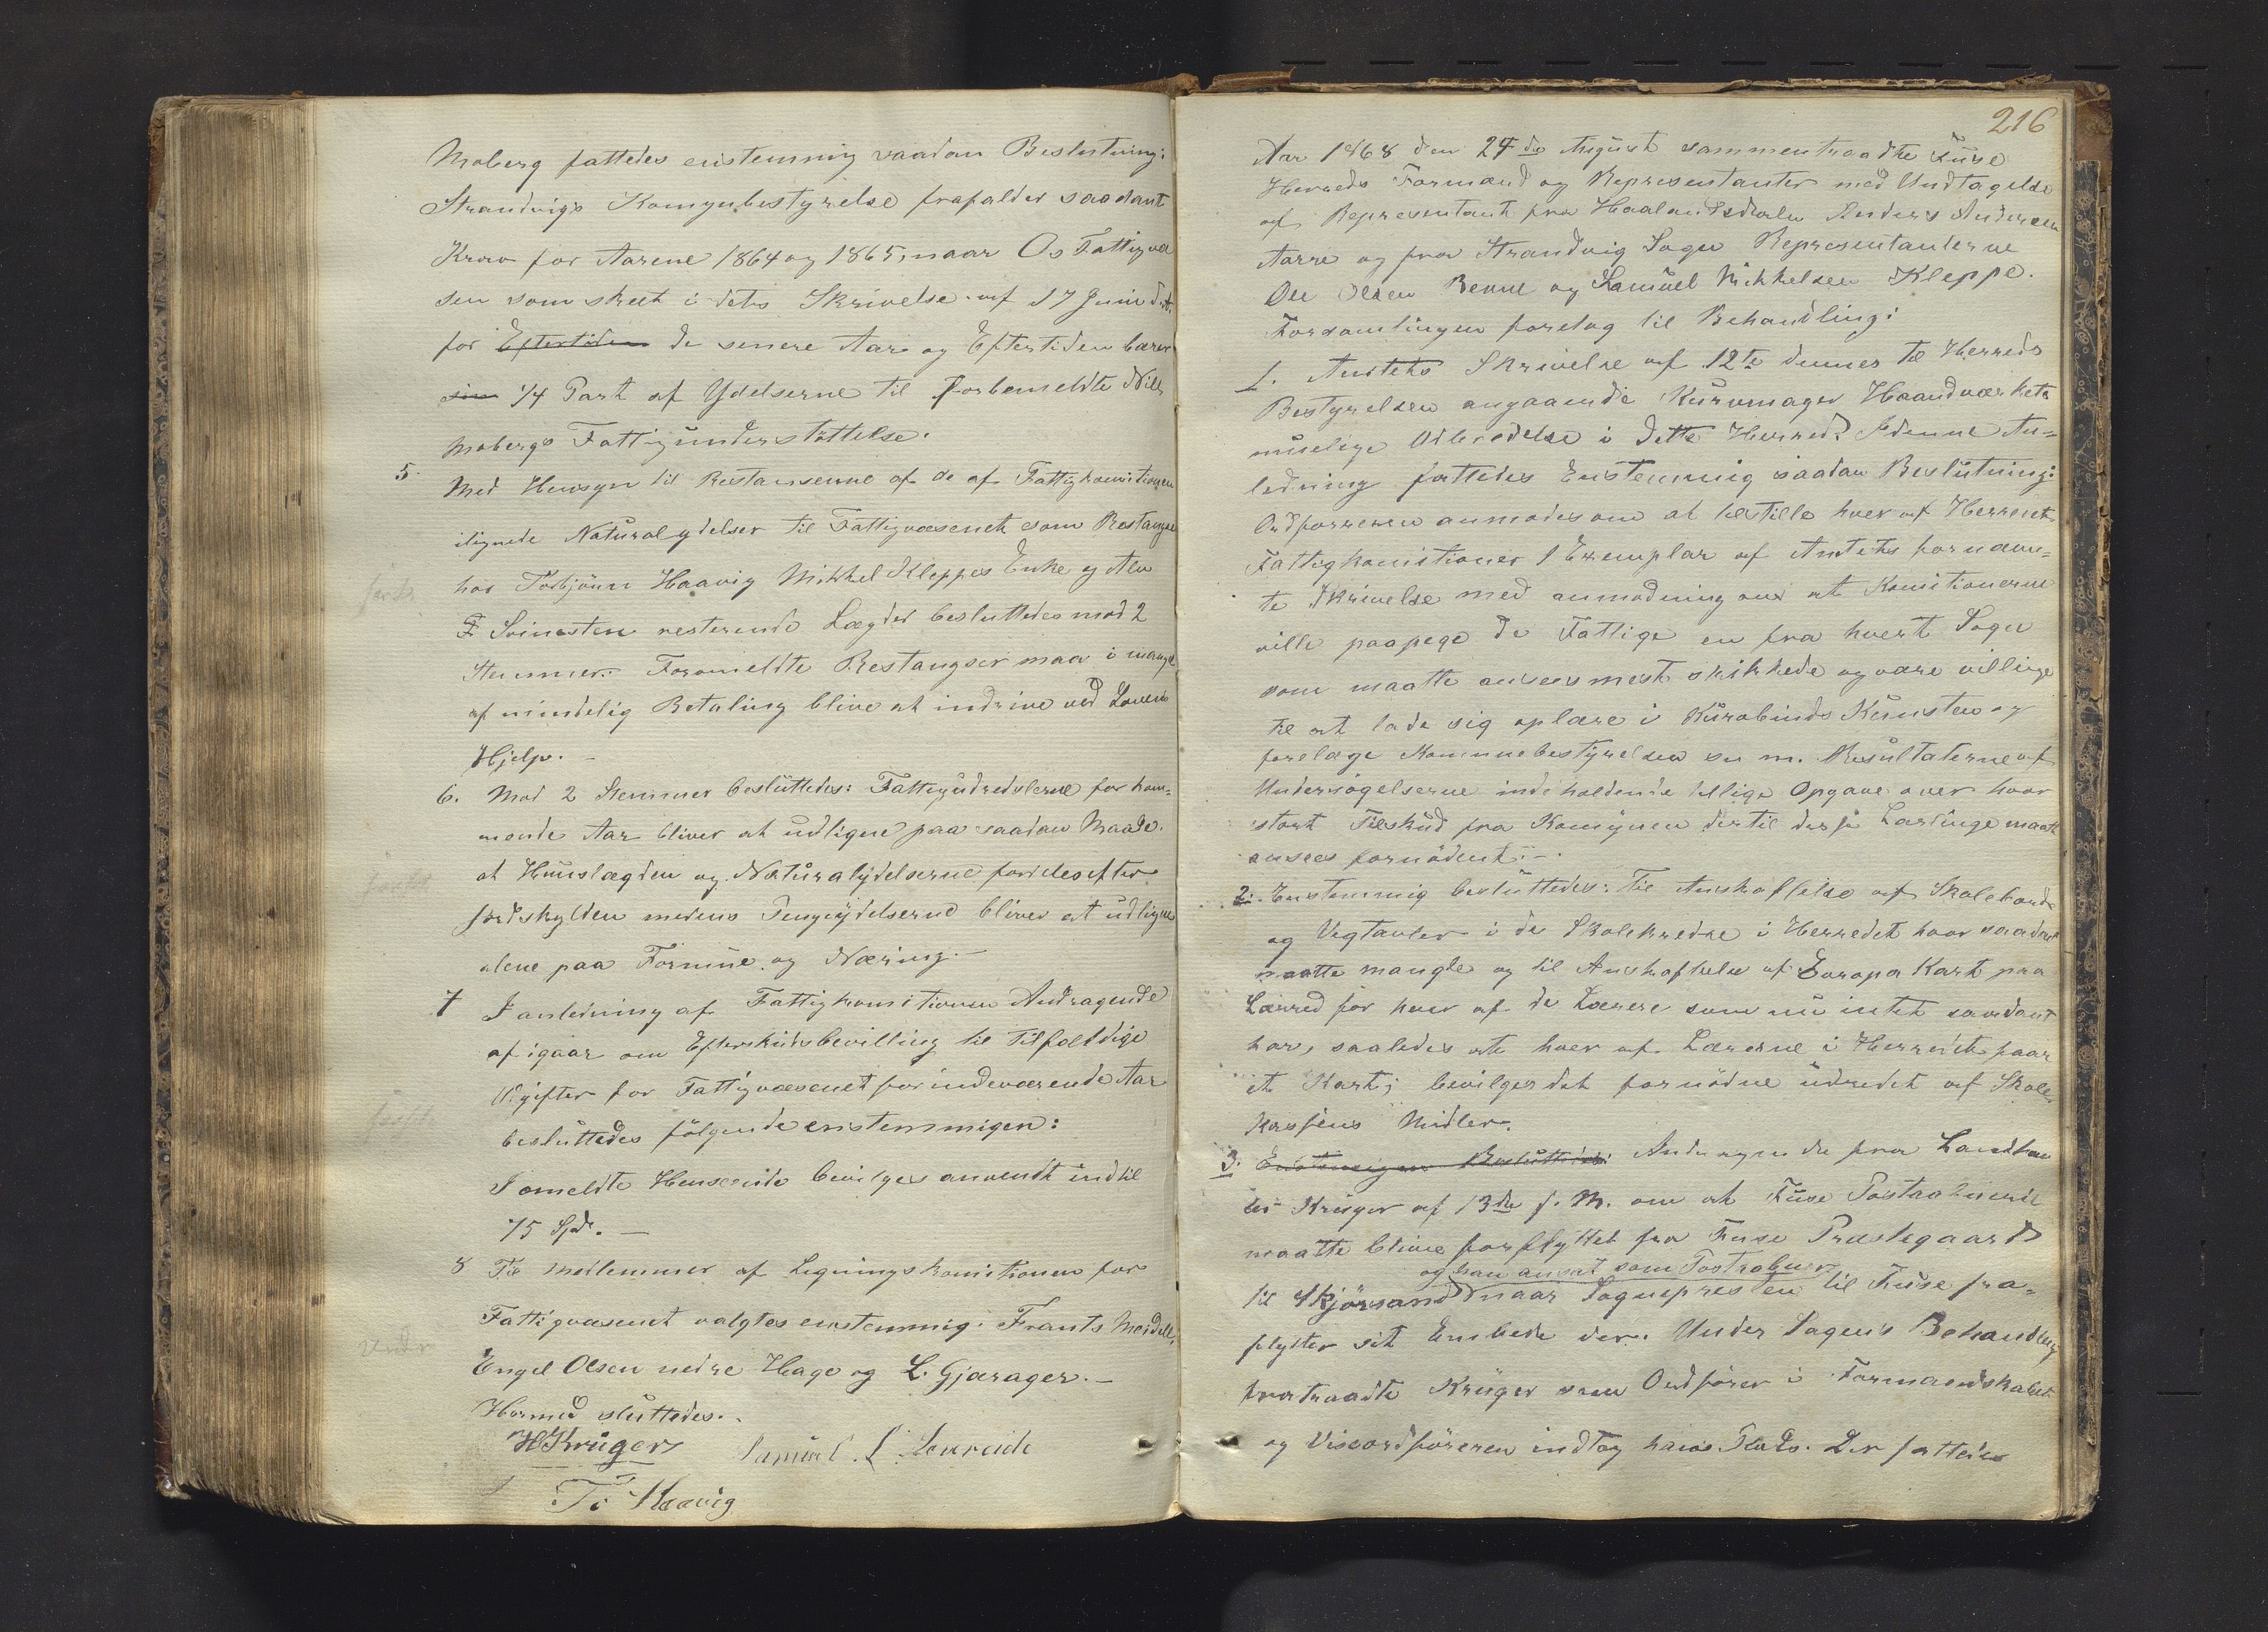 Moberg fattedes enstemmig saadan Beslutning:
Strandvigs Komunbestyrelse frafalder saadant
Krav for Aarene 1864 og 1865, naar Os Fattigvæ
sen som skeet i dets Skrivelse af 17 Juni d. A.
for Eftertiden de senere Aar og Eftertiden bærer
sin 1/4 Part af Ydelserne til forbemeldte Nills
Mobergs Fattigunderstöttelse.
5 Med Hensyn til Restanserne af de af Fattigkomitionen
ilignede Naturalydelser til Fattigvæsenet som Restangse
hos Torbjörn Haavig Mikkel Kleppes Enke og
F Svinesten resterende Lægder besluttedes mod 2
Stemmer: Foromeldte Restangser maa i mangel
af mindelig Betaling blive at indrive ved Lovens
Hjelp. -
6. Mod 2 Stemmer besluttedes: Fattigudredslerne for kom-
mende Aar bliver at udligne paa saadan Maade.
at Huuslægden og Naturalydelserne fordeles efter
Jordskylden medens Pengeydelserne bliver at udligne
alene paa Formue og Næring. -
7 I anledning af Fattigkomitionen Andragende
af igaar om Efterskudsbevilling til Tilfældige
Utgifter for Fattigvæsenet for indeværende Aar
besluttedes fölgende enstemmigen:
I omeldte Henseende bevilges anvendt indtil
75 Spd. -
8 Til Medlemmer af Ligningskomitionen for
Fattigvæsenet valgtes enstemmig: Frants Meidell,
Engel Olsen nedre Hage og L. Gjærager. -
Hermed sluttedes.
HKrüger Samuel L Lekveide
T. Haavig
216
Aar 1868 den 24de August sammentraadte Fuse
Herreds Formænd og Representanter med Undtagelse
af Representant fra Haalandsdalen Anders Andersen
Aarre og fra Strandvig Sogn Representanterne
Ole Olsen Revne og Samuel Mikkelsen Kleppe.
Forsamlingen foretog til Behandling:
1. Amtets Skrivelse af 12te dennes til Herreds
Bestyrelsen angaaende Kurvmager Haandværkets
muelige Udbredelse i dette Herred? I denne An-
ledning fattedes Enstemmig saadan Beslutning:
Ordföreren anmodes om at tilstille hver af Herredets
Fattigkomitioner 1 Exemplar af Amtets fornævn-
te Skrivelse med anmodning om at Komitionerne
ville paapege de Fattige en fra hvert Sogn
som maatte ansees mest skikkede og være villige
til at lade sig oplære i Kurvbinds Kunsten og
forelæge Komunebestyrelsen su m. Resultaterne af
Undersögelserne indeholdende tillige Opgave over hvor
stort Tilskud fra Komunen dertil disse Lærlinge maatte
ansees fornödent. -
2. Enstemmig besluttedes: Til Anskaffelse af Skoleborde
og Vegtavler i de Skolekredse i Herredet hvor saadant
maatte mangle og til Anskaffelse af Evropa Kart paa
Lærred for hver af de Lærere som nu intet saadant
har, saaledes at hver af Lærerne i Herredet faar
et Kart; bevilges det fornödne udredet af Skole
kassens Midler.
3. Enstemmigen Besluttedes: Andragende fra Landhan
dler Krüger af 13de f. M. om at Fuse Postaabneri
maatte blive forflyttet fra Fuse Præstegaard
og han ansat som Postaabner
til Skjörsand naar Sognepresten til Fuse fra-
flytter sit Embede der. Under Sagens Behandling
fratraadte Krüger som Ordförer i Formandskabet
og Viseordföreren indtog hans Plads. Der fattedes